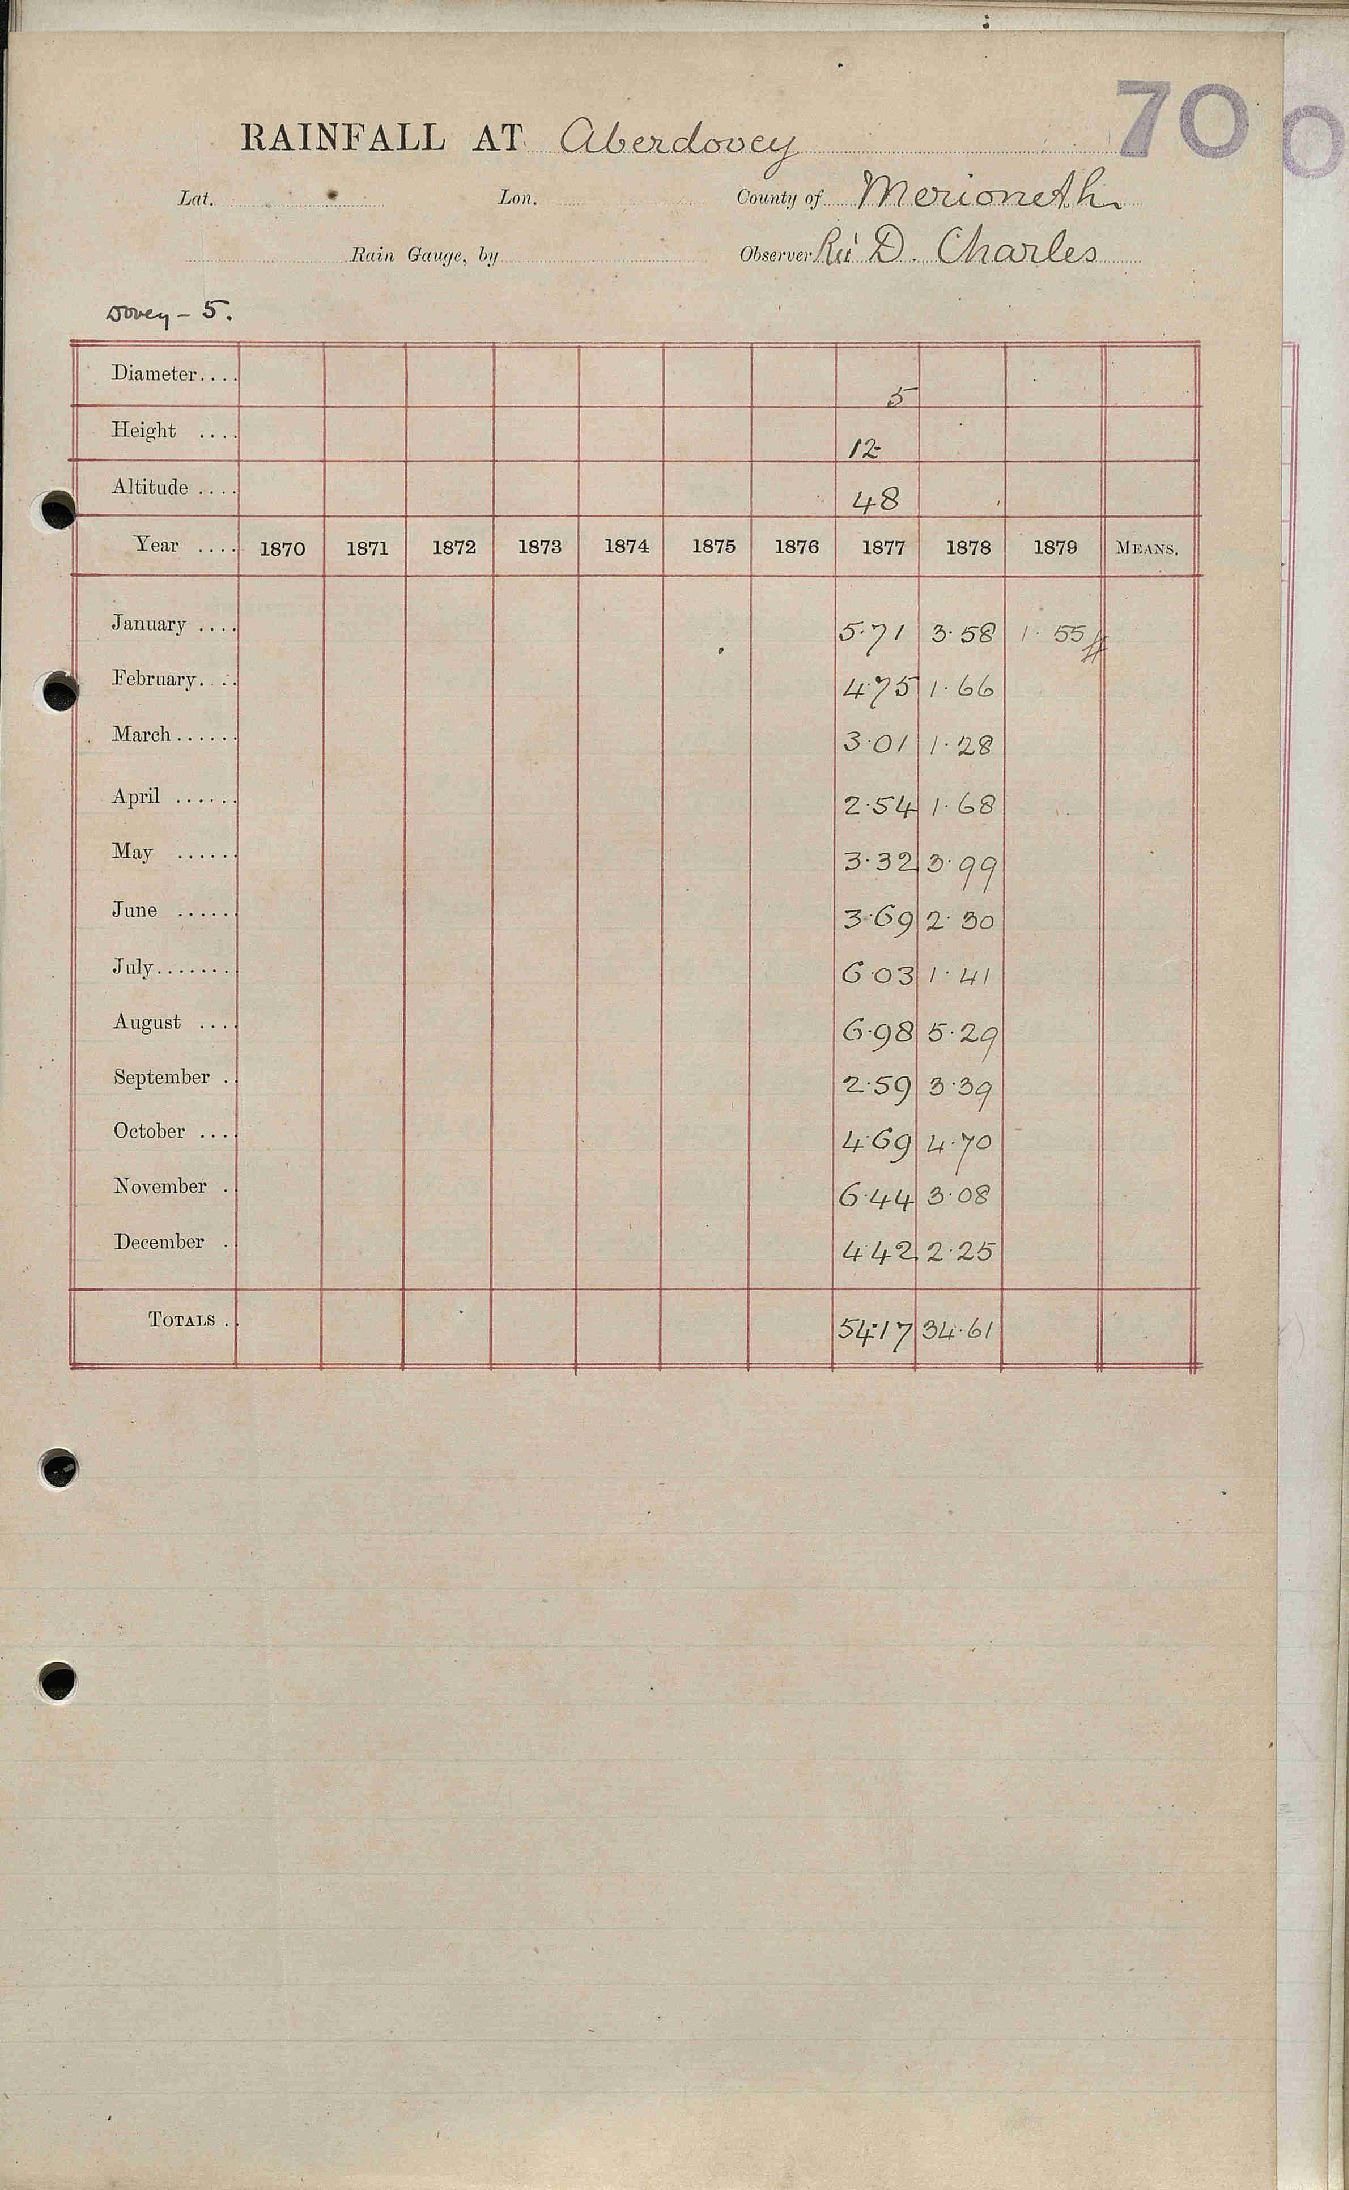 70
RAINFALL AT Aberdovey
Lat. Lon. County of Merioneth
Rain Gauge, by Observer Rev D. Charles
Dovey - 5.
Diameter.... 5
Height .... 12
Altitude .... 48
Year .... 1870 1871 1872 1873 1874 1875 1876 1877 1878 1879 MEANS.
January .... 5.71 3.58 1.55 #
February.... 4.75 1.66
March...... 3.01 1.28
April ...... 2.54 1.68
May ...... 3.32 3.99
June ...... 3.69 2.30
July....... 6.03 1.41
August .... 6.98 5.29
September . 2.59 3.39
October .... 4.69 4.70
November . 6.44 3.08
December . 4.42 2.25
TOTALS . 54.17 34.61